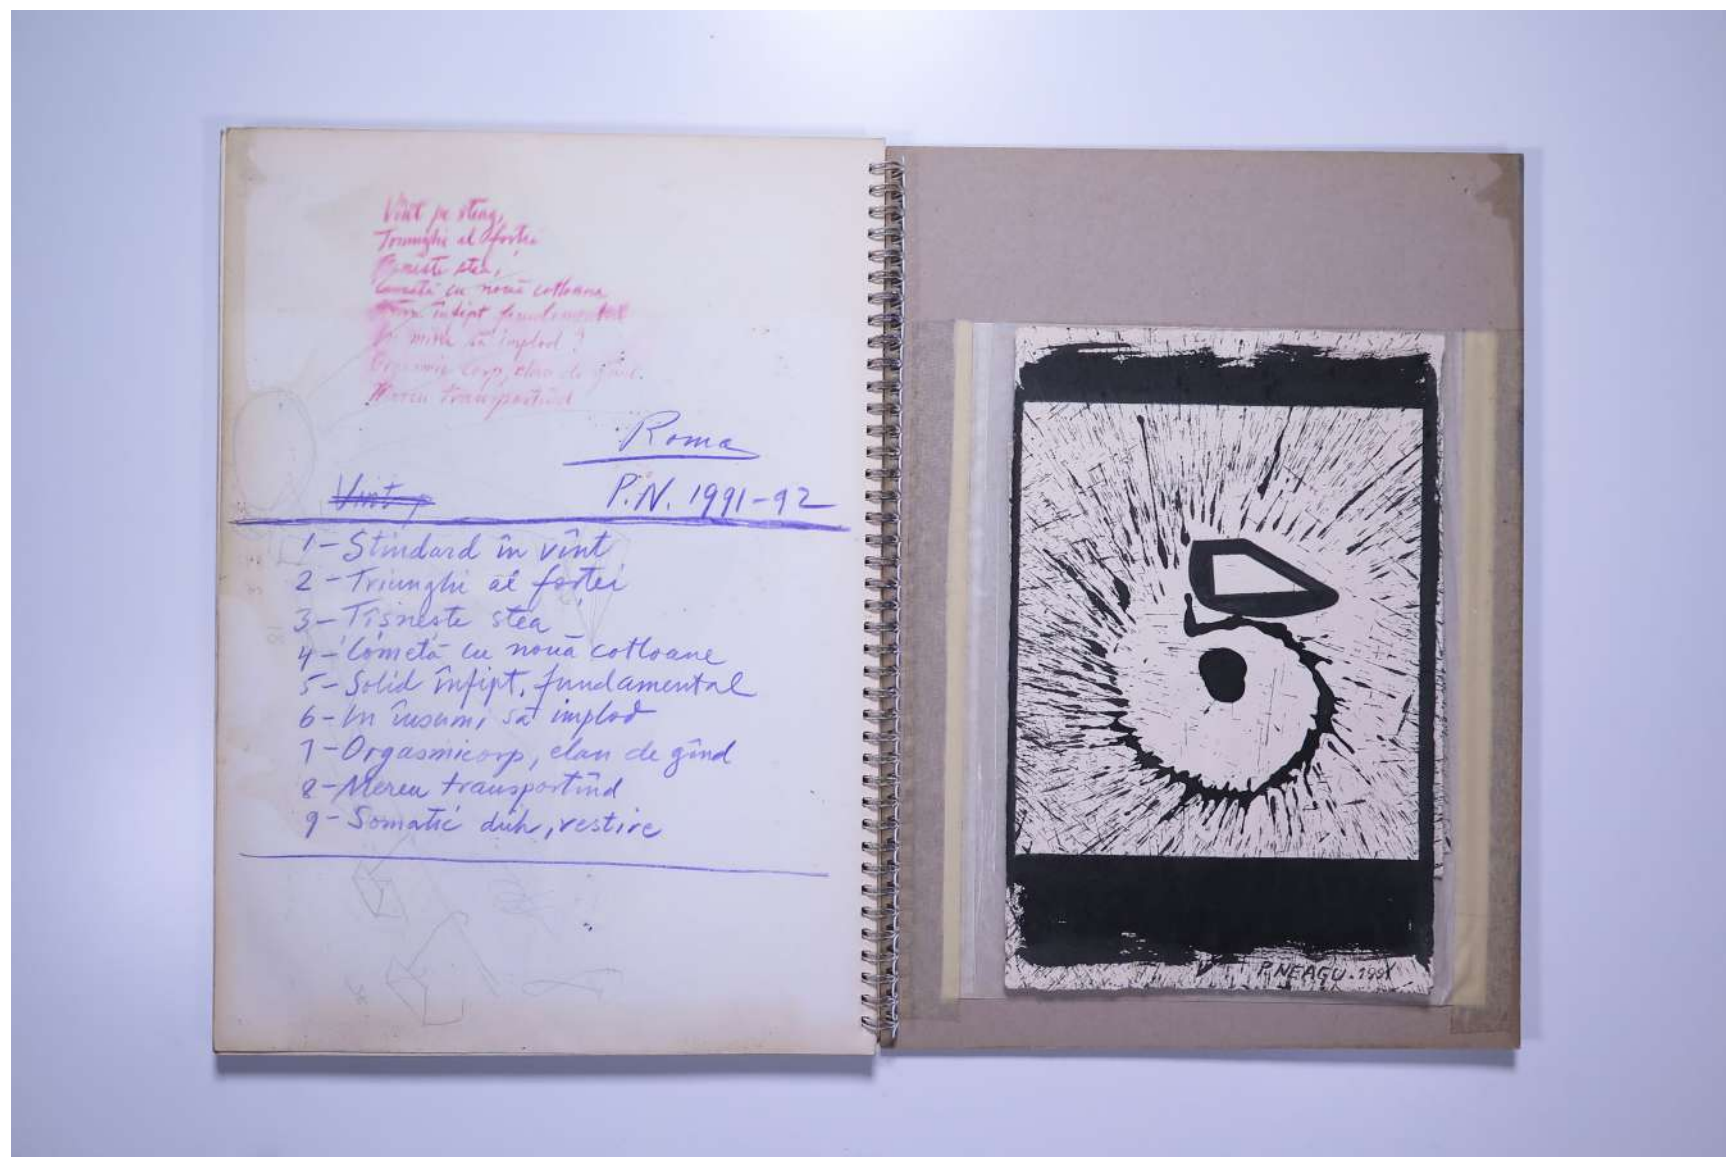 Vînt pe steag,
Triunghi al forței
stea,
Cometă cu nouă cotloane
înfipt fundamental
să implod?
corp, elan de gînd.
Mereu transportînd
Roma
P.N. 1991-92
1-Stindard în vînt
2-Triunghi al forței
3-Tîsneste stea
4-Cometă cu nouă cotloane
5-Solid înfipt, fundamental
6-In însumi, să implod
7-Orgasmicorp, elan de gînd
8-Mereu transportînd
9-Somatic duh, vestire
P. NEAGU. 1991